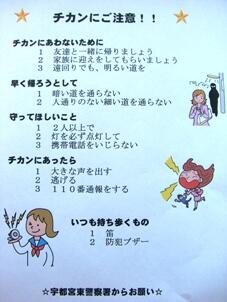 チカンにご注意！！
チカンにあわないために
1 友達と一緒に帰りましょう
2 家族に迎えをしてもらいましょう
3 遠回りでも、明るい道を
早く帰ろうとして
1 暗い道を通らない
2 人通りのない細い道を通らない
守ってほしいこと
1 2人以上で
2 灯を必ず点灯して
3 携帯電話をいじらない
チカンにあったら
1 大きな声を出す
2 逃げる
3 110番通報をする
いつも持ち歩くもの
1 笛
2 防犯ブザー
☆宇都宮東警察署からお願い☆